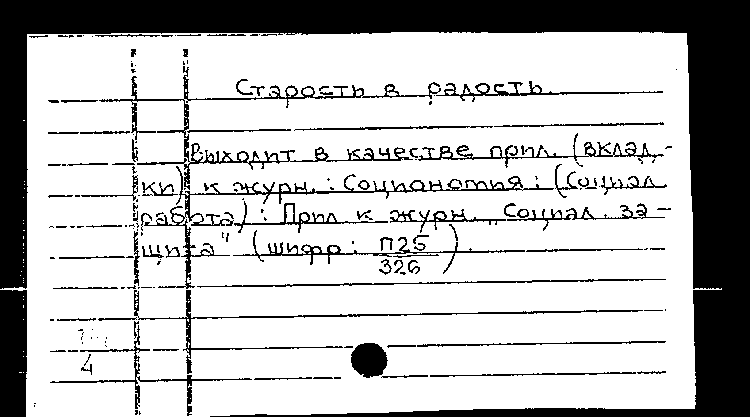 Старость в радость.
Выходит в качестве прил. (вклад-
ки) к журн.: Социономия: (Социал.
работа): Прил к журн. „Социал. за-
щита" (шифр: П25
326 ).
4